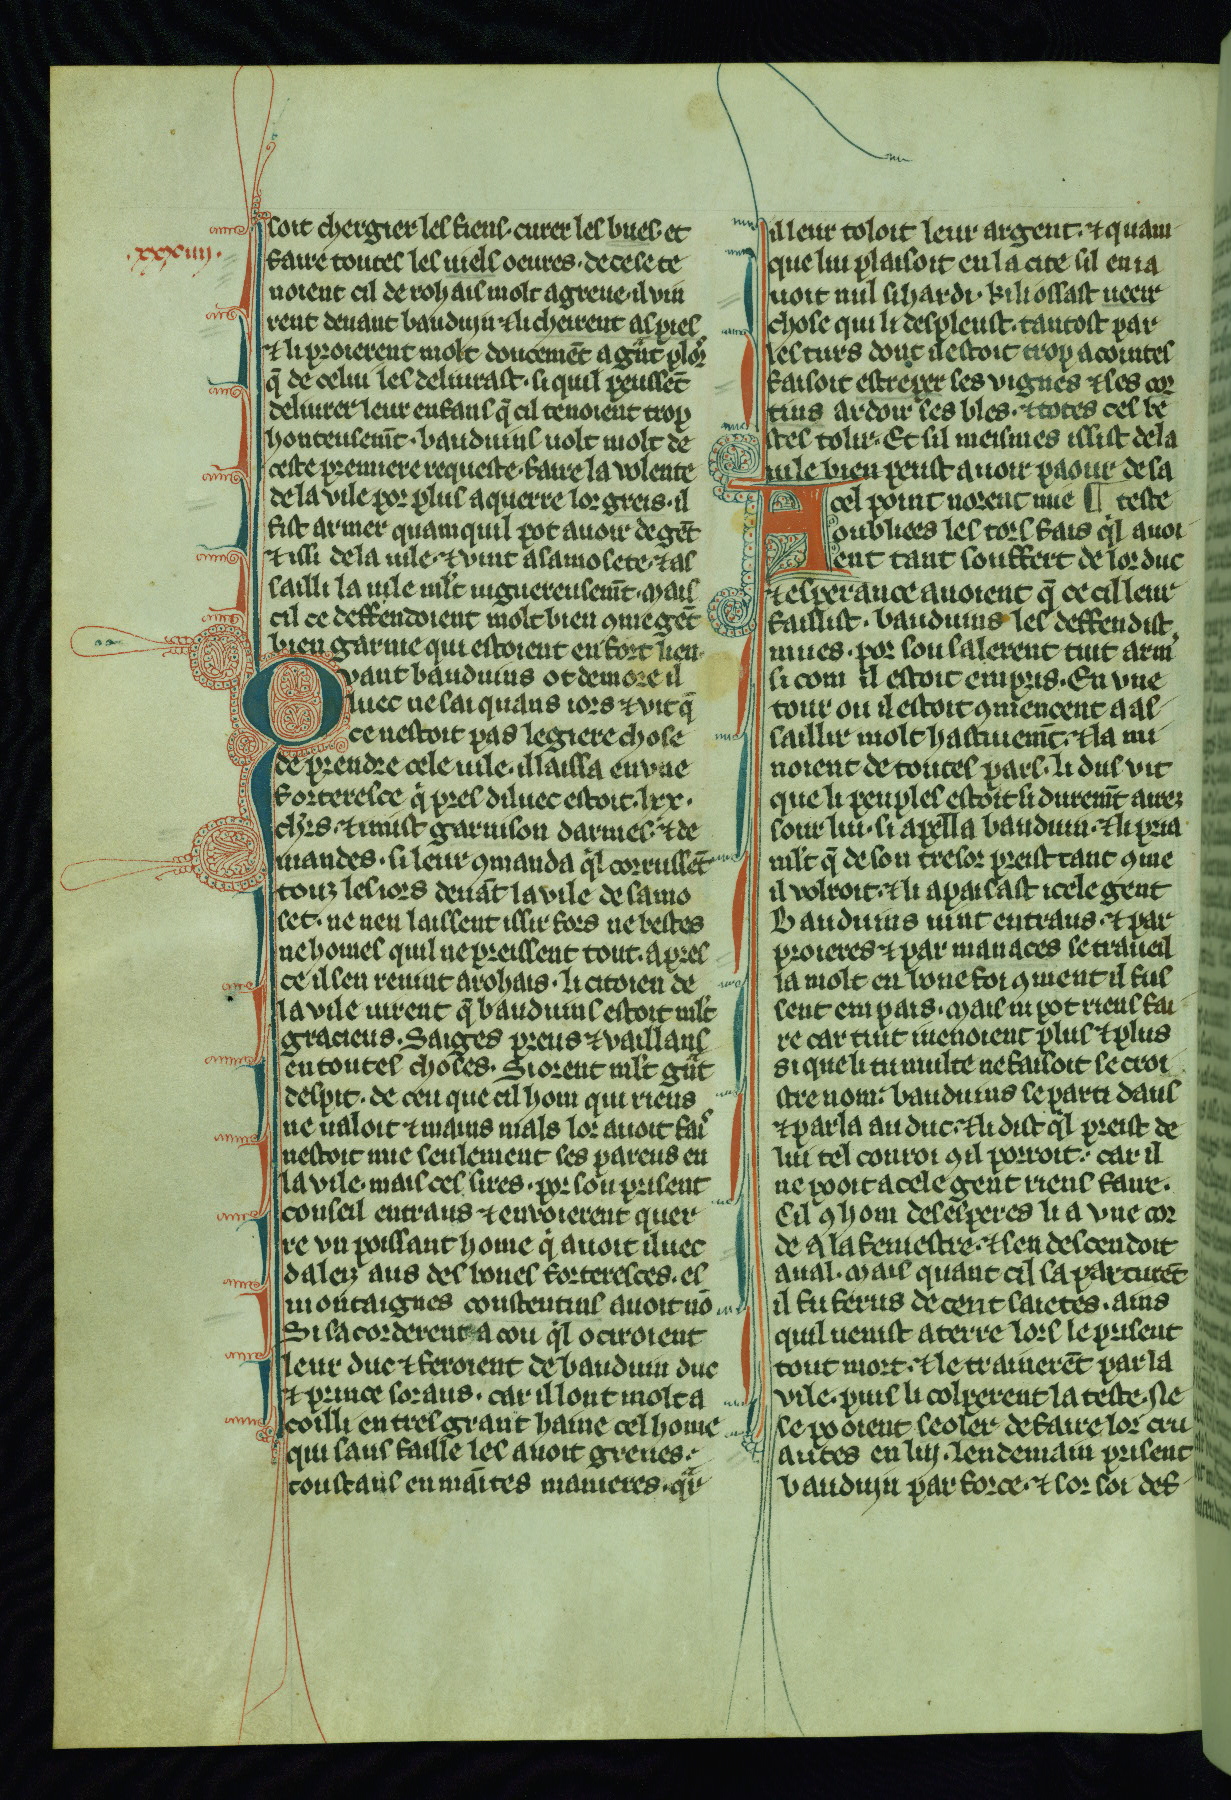 .xxxiiij.
soit chergier les fiens. curer les bues. et
faire toutes les viels oeures. de cese te
noient cil de rohais molt agreue. il vin
rent deuant bauduyn ⁊ li cheirent as pies
⁊ li proierent molt doucemēt a gᵃ̄t plor
q̄ de celui les deliurast. si quil peussēt
deliurer leur enfans q̄ cil tenoient trop
honteusemt̄. bauduins uolt molt de
ceste premiere requeste. faire la volente
de la vile por plus aquerre lor greis. il
fist armer quamquil pot auoir de gēt
⁊ issi de la uile. ⁊ vint a samosete. ⁊ as
sailli la uile ml't uiguereusemt̄. Mais
cil ce deffendoient molt bien 9me gēt
bien garnie qui estoient en fort lieu.
Qvant bauduins ot demore il
luec ne sai quans iors ⁊ vit q̄
ce nestoit pas legiere chose
de prendre cele uile. il laissa en vne
forteresce q̇ pres diluec estoit. lxx.
chr̄s. ⁊ i mist garnison darmes. ⁊ de
uiandes. si leur 9manda q̇l corrussēt
touz les iors deuāt la vile de samo
set. ne neu laissent issir fors ne bestes
ne homes quil ne preissent tout. apres
ce il sen reuint a rohais. li citoien de
la vile uirent q̄ bauduins estoit ml't
gracieus. Saiges preus ⁊ vaillans
en toutes choses. Si orent ml't gᵃ̄t
despit. de ceu que cil hom qui riens
ne ualoit ⁊ mains mals lor auoit fai
nestoit mie seulement ses parens en
la vile. mais ces sires. por sou prisent
conseil entraus ⁊ envoierent quer
re vn poissant home q̇ auoit iluec
daleiz aus des bones forteresces. es
montaignes constentins auoit nō
Si sacorderent a cou q̇l ociroient
leur duc ⁊ feroient de bauduin duc
⁊ prince soraus. car il lont molt a
coilli en tres grant haine cel home
qui sans faille les auoit greues.
toustans en maītes manieres. qr̄
il leur toloit leur argent. ⁊ quam
que lui plaisoit en la cite sil en ia
uoit nul si hardi. ki li ossast ueeir
chose qui li despleust. tantost par
les turs dont il estoit trop acointes
faisoit estreper ses vignes ⁊ ses cor
tius ardoir ses bles. ⁊ totes ces be
stes tolir. Et sil meismes issist de la
uile bien peust auoir paour de sa
A cel point norent mie ¶ teste
oubliees les tors fais q̇l auoi
ent tant souffert de lor duc
⁊ esperance auoient q̄ ce cil leur
faillist. bauduins les deffendist
mies. por sou salerent tuit arm
si com il estoit empris. En vne
tour ou il estoit 9mencent a as
saillir molt hastiuemt̄. ⁊ la mi
noient de toutes pars. li dus vit
que li peuples estoit si duremt̄ airez
sour lui. si apella bauduin. ⁊ li pria
ml't q̄ de son tresor preist tant 9me
il volroit. ⁊ li apaisast icele gent
Bauduins uint entraus. ⁊ par
proieres ⁊ par manaces se traueil
la molt en bone foi 9ment il fus
sent em pais. Mais ni pot riens fai
re car tuit menoient plus ⁊ plus
si que li tumulte ne faisoit se croi
stre nom: bauduins se parti daus
⁊ parla au duc. ⁊ li dist q̇l preist de
lui tel conroi 9il porroit. car il
ne pooit a cele gent riens faire.
Cil 9 hom desesperes lia vne cor
de a la fenestre. ⁊ sen descendoit
aual. Mais quant cil laparcurēt
il fu ferus de cent saietes. ains
quil uenist a terre lors le prisent
tout mort. ⁊ le trainerēt par la
vile. puis li colperent la teste. Ne
se pooient seoler de faire lor cru
autes en lui. lendemain prisent
bauduyn par force. ⁊ sor soi def